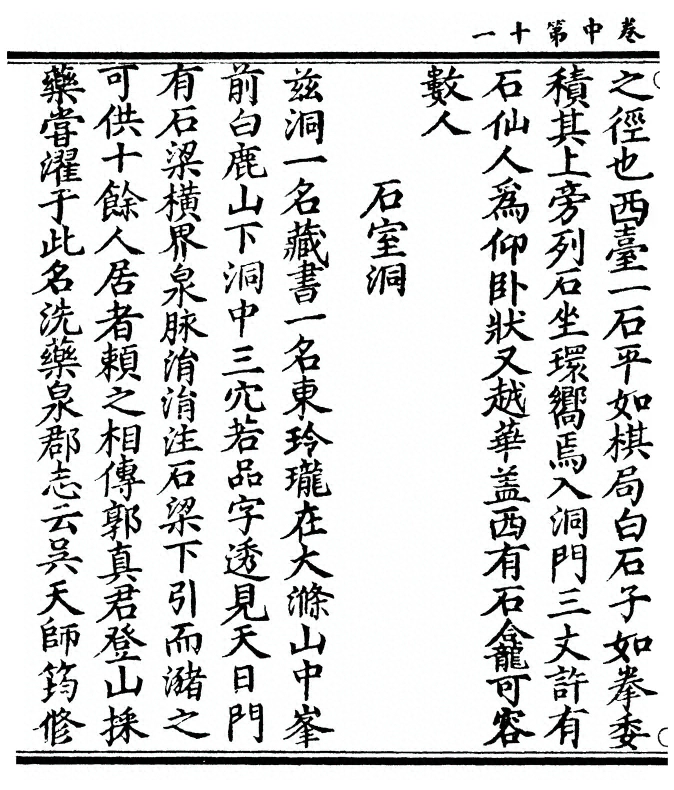 卷中第十一
之徑也西臺一石平如棋局白石子如拳委
積其上旁列石坐環嚮焉入洞門三丈許有
石仙人爲仰卧狀又越華盖西有石龕可容
數人
石室洞
兹洞一名藏書一名東玲瓏在大滌山中峯
前白鹿山下洞中三穴若品字透見天日門
有石梁横界泉脉涓涓注石梁下引而瀦之
可供十餘人居者頼之相傳郭真君登山採
藥嘗濯于此名洗藥泉郡志云吴天師筠修